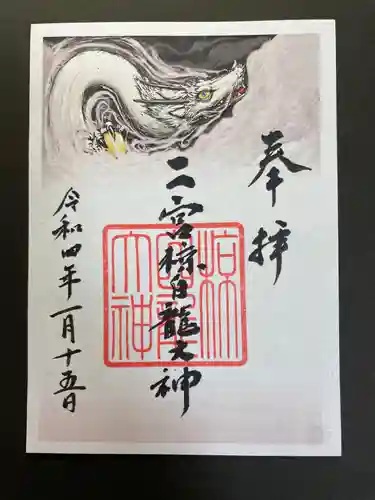 奉拝
二宮椋白龍大神
令和四年一月十五日